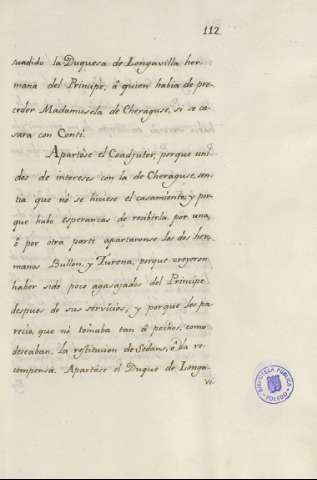 112
suadido la Duquesa de Longavilla her
mana del Principe, â quien habia de pre
ceder Madamusela de Cheráguse, si se ca
sara con Conti.
Apartóse el Coadjutor, porque uni
dos de intereses con la de Cheráguse, sen
tia que no se hiciese el casamiento; y por
que hubo esperanzas de recibirla por una,
ô por otra parte apartaronse los dos her
manos Bullon, y Turena, porque creyeron
haber sido poco agasajados del Principe
despues de sus servicios, y porque les pa
recia, que no tomaba tan â pechos, como
deseaban, la restitucion de Sedan, ô la re
compensa. Apartóse el Duque de Longa
vi
BIBLIOTECA PÚBLICA
TOLEDO